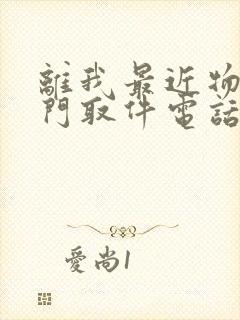 離我最近物
門取件電話
愛尚1